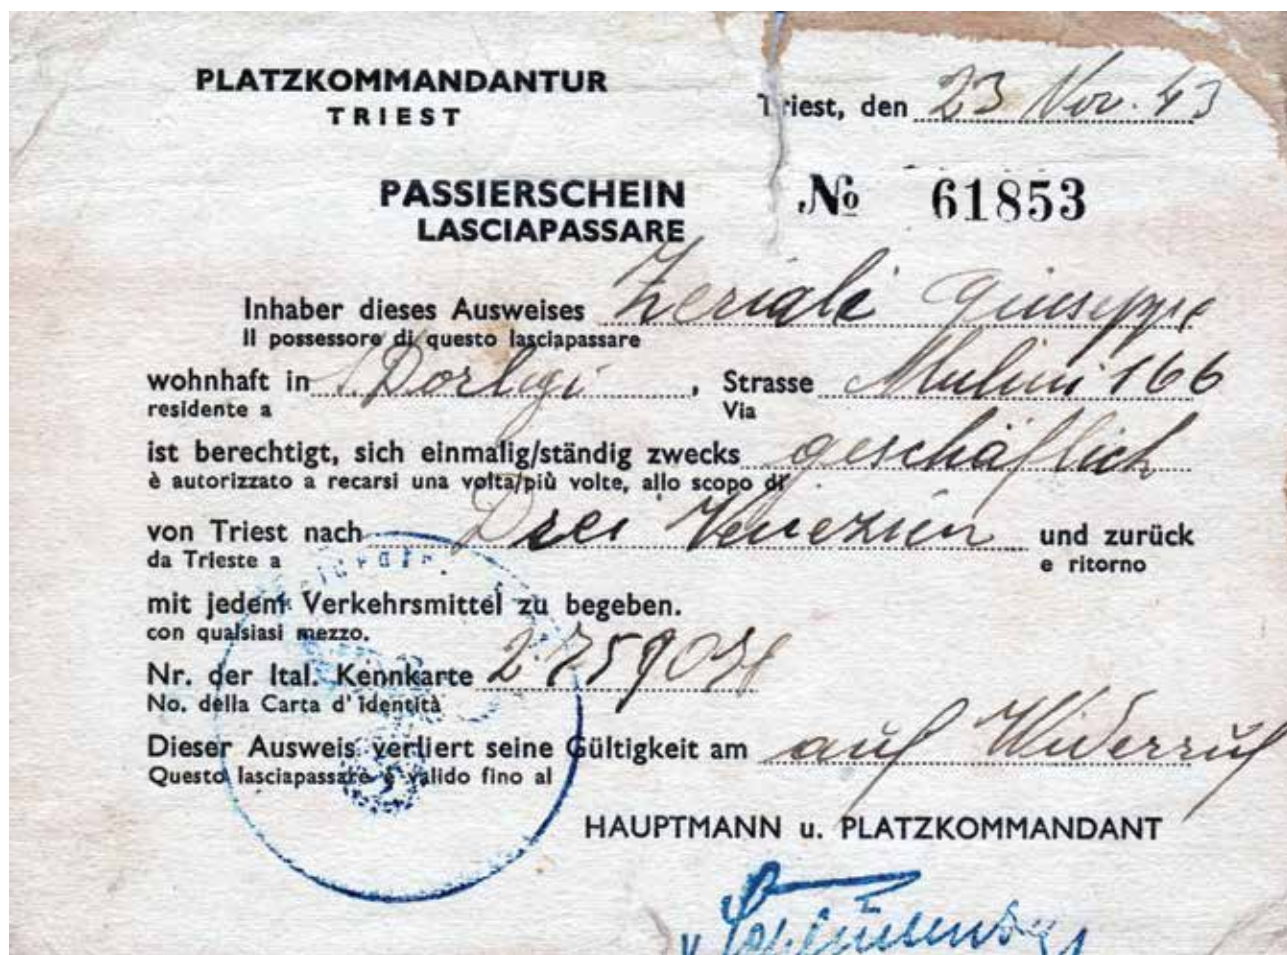 PLATZKOMMANDANTUR
TRIEST
Triest, den 23 Nov. 43
PASSIERSCHEIN
LASCIAPASSARE
№ 61853
Inhaber dieses Ausweises Zeriali Giuseppe
Il possessore di questo lasciapassare
wohnhaft in S. Dorligo, Strasse Mulini 166
residente a Via
ist berechtigt, sich einmalig/ständig zwecks geschäflich
è autorizzato a recarsi una volta/più volte, allo scopo di
von Triest nach Drei Venezien und zurück
da Trieste a e ritorno
mit jedem Verkehrsmittel zu begeben.
con qualsiasi mezzo.
Nr. der Ital. Kennkarte
No. della Carta d'identità
Dieser Ausweis verliert seine Gültigkeit am auf Widerruf
Questo lasciapassare è valido fino al
HAUPTMANN u. PLATZKOMMANDANT